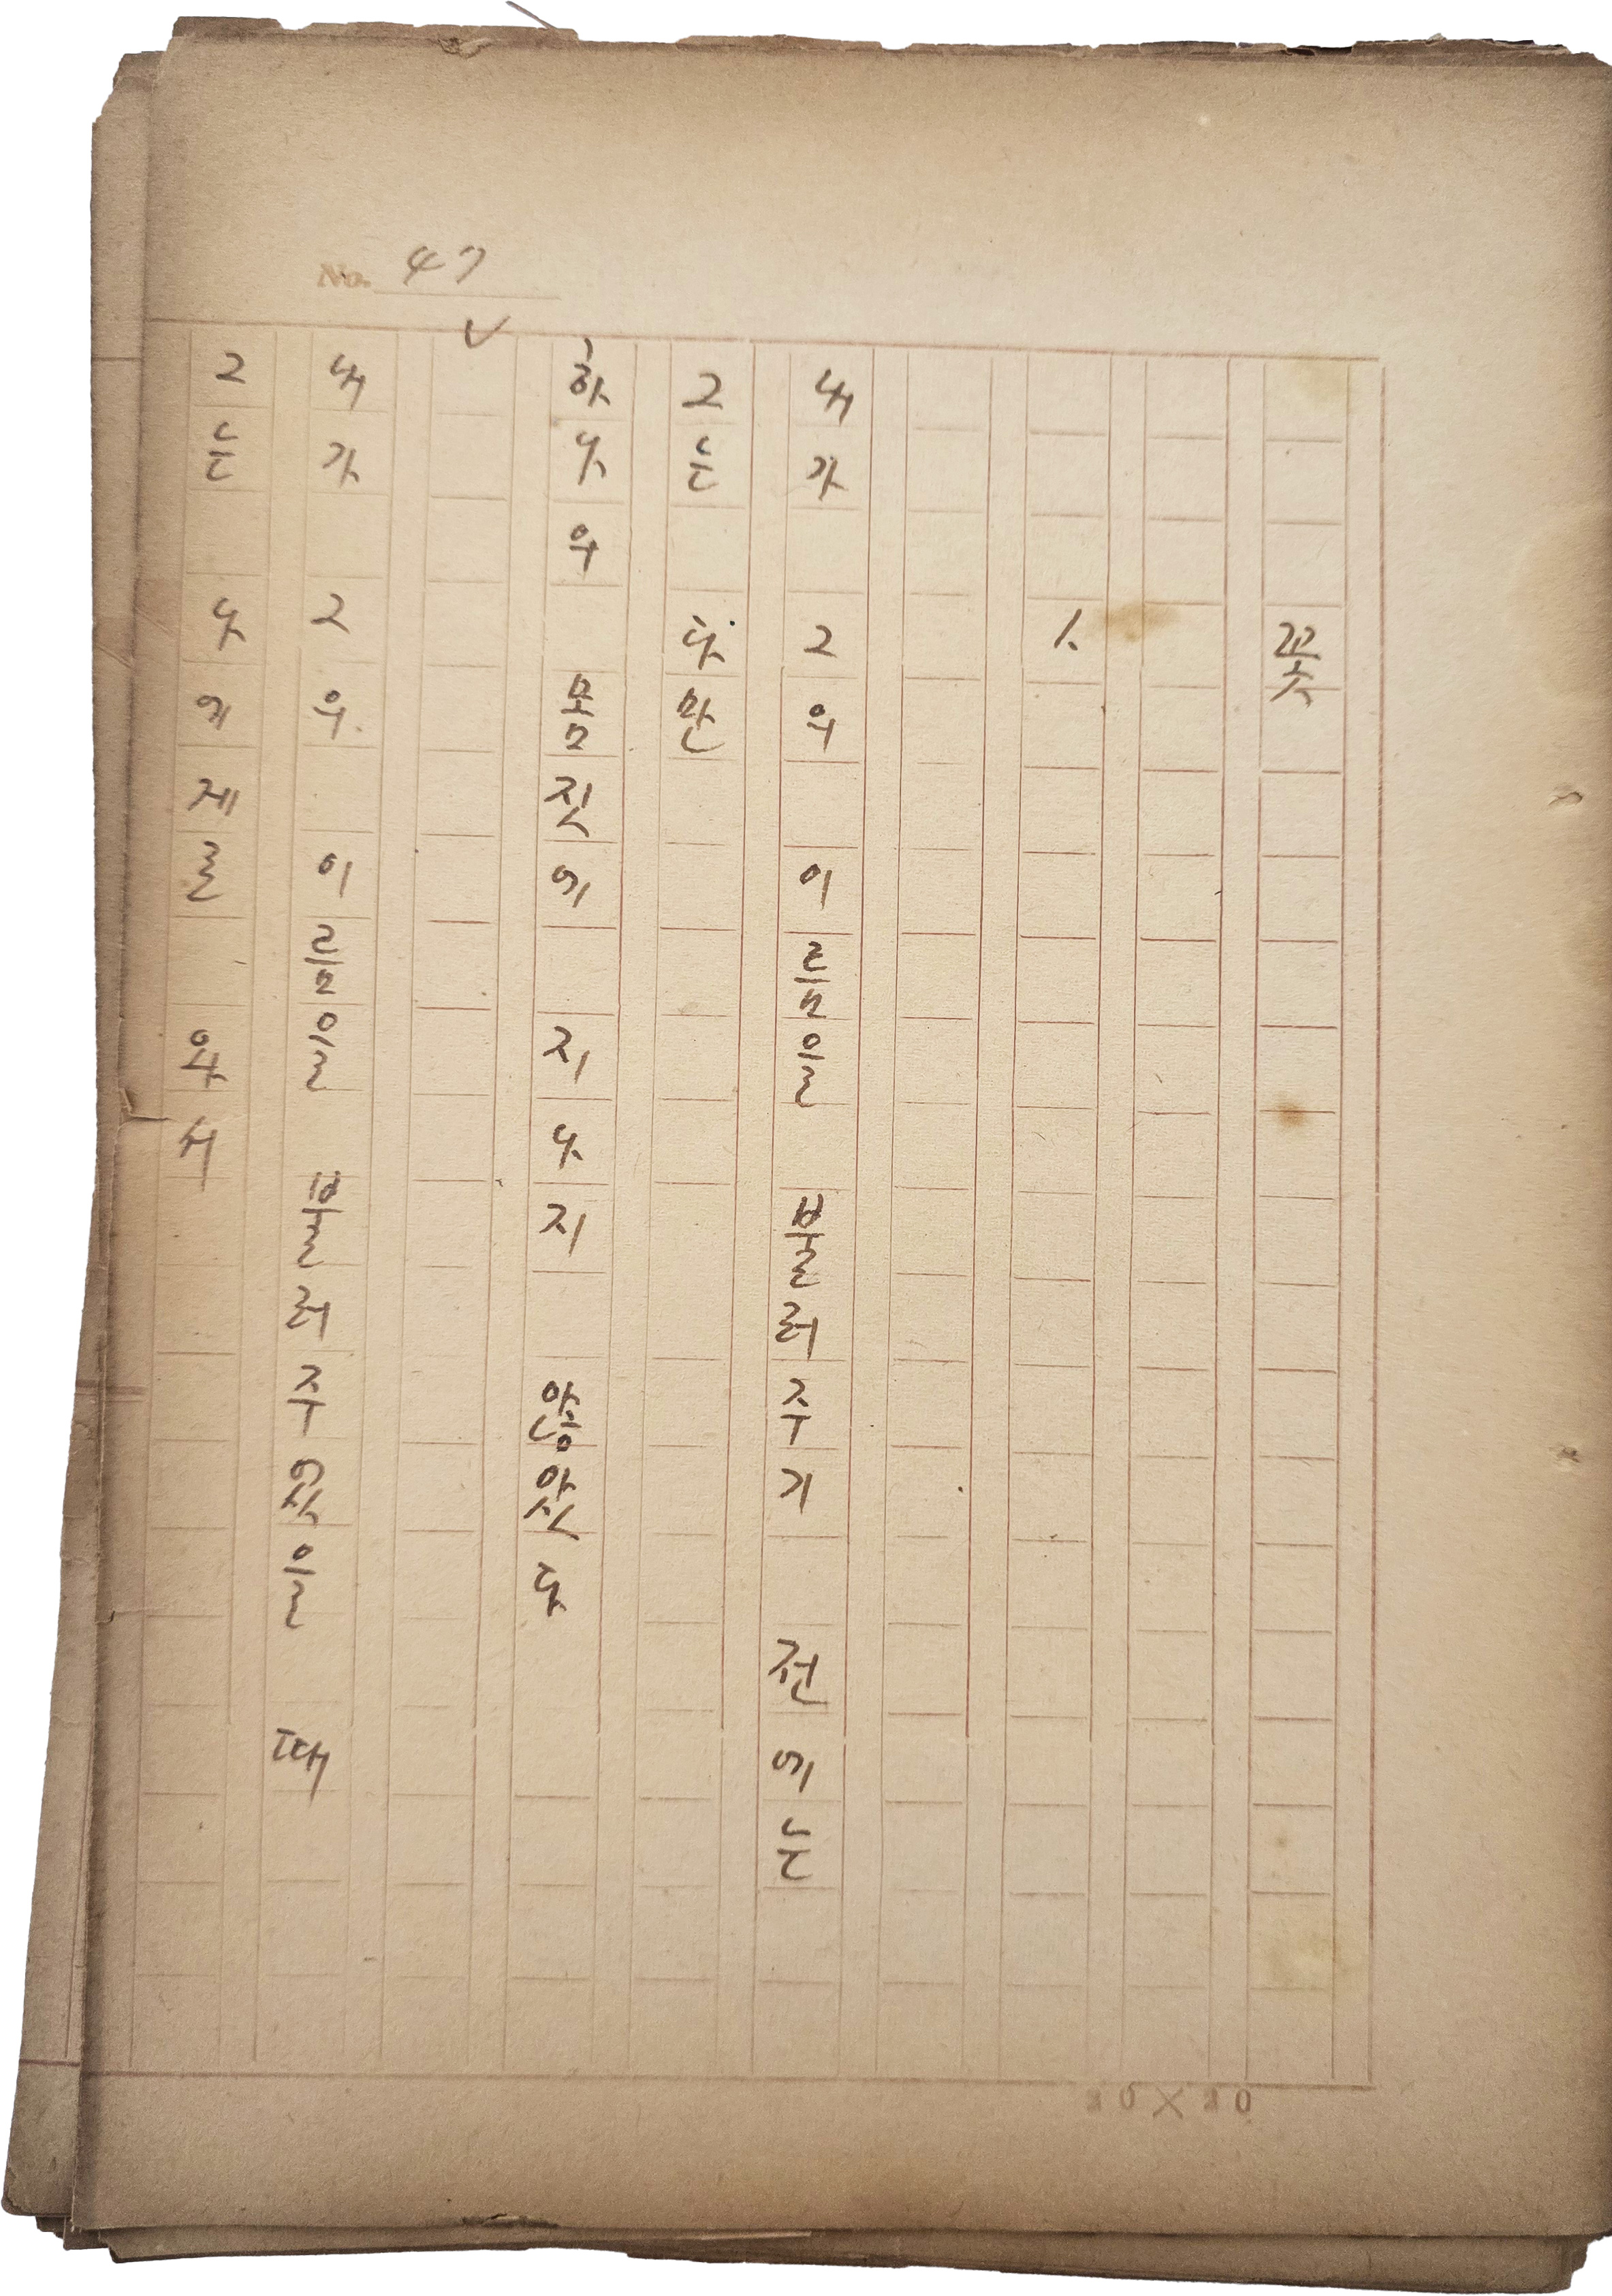 No. 47
꽃
1.
내가 그의 이름을 불러주기 전에는
그는 다만
하나의 몸짓에 지나지 않았다
내가 그의 이름을 불러주었을 때
그는 나에게로 와서
20×20